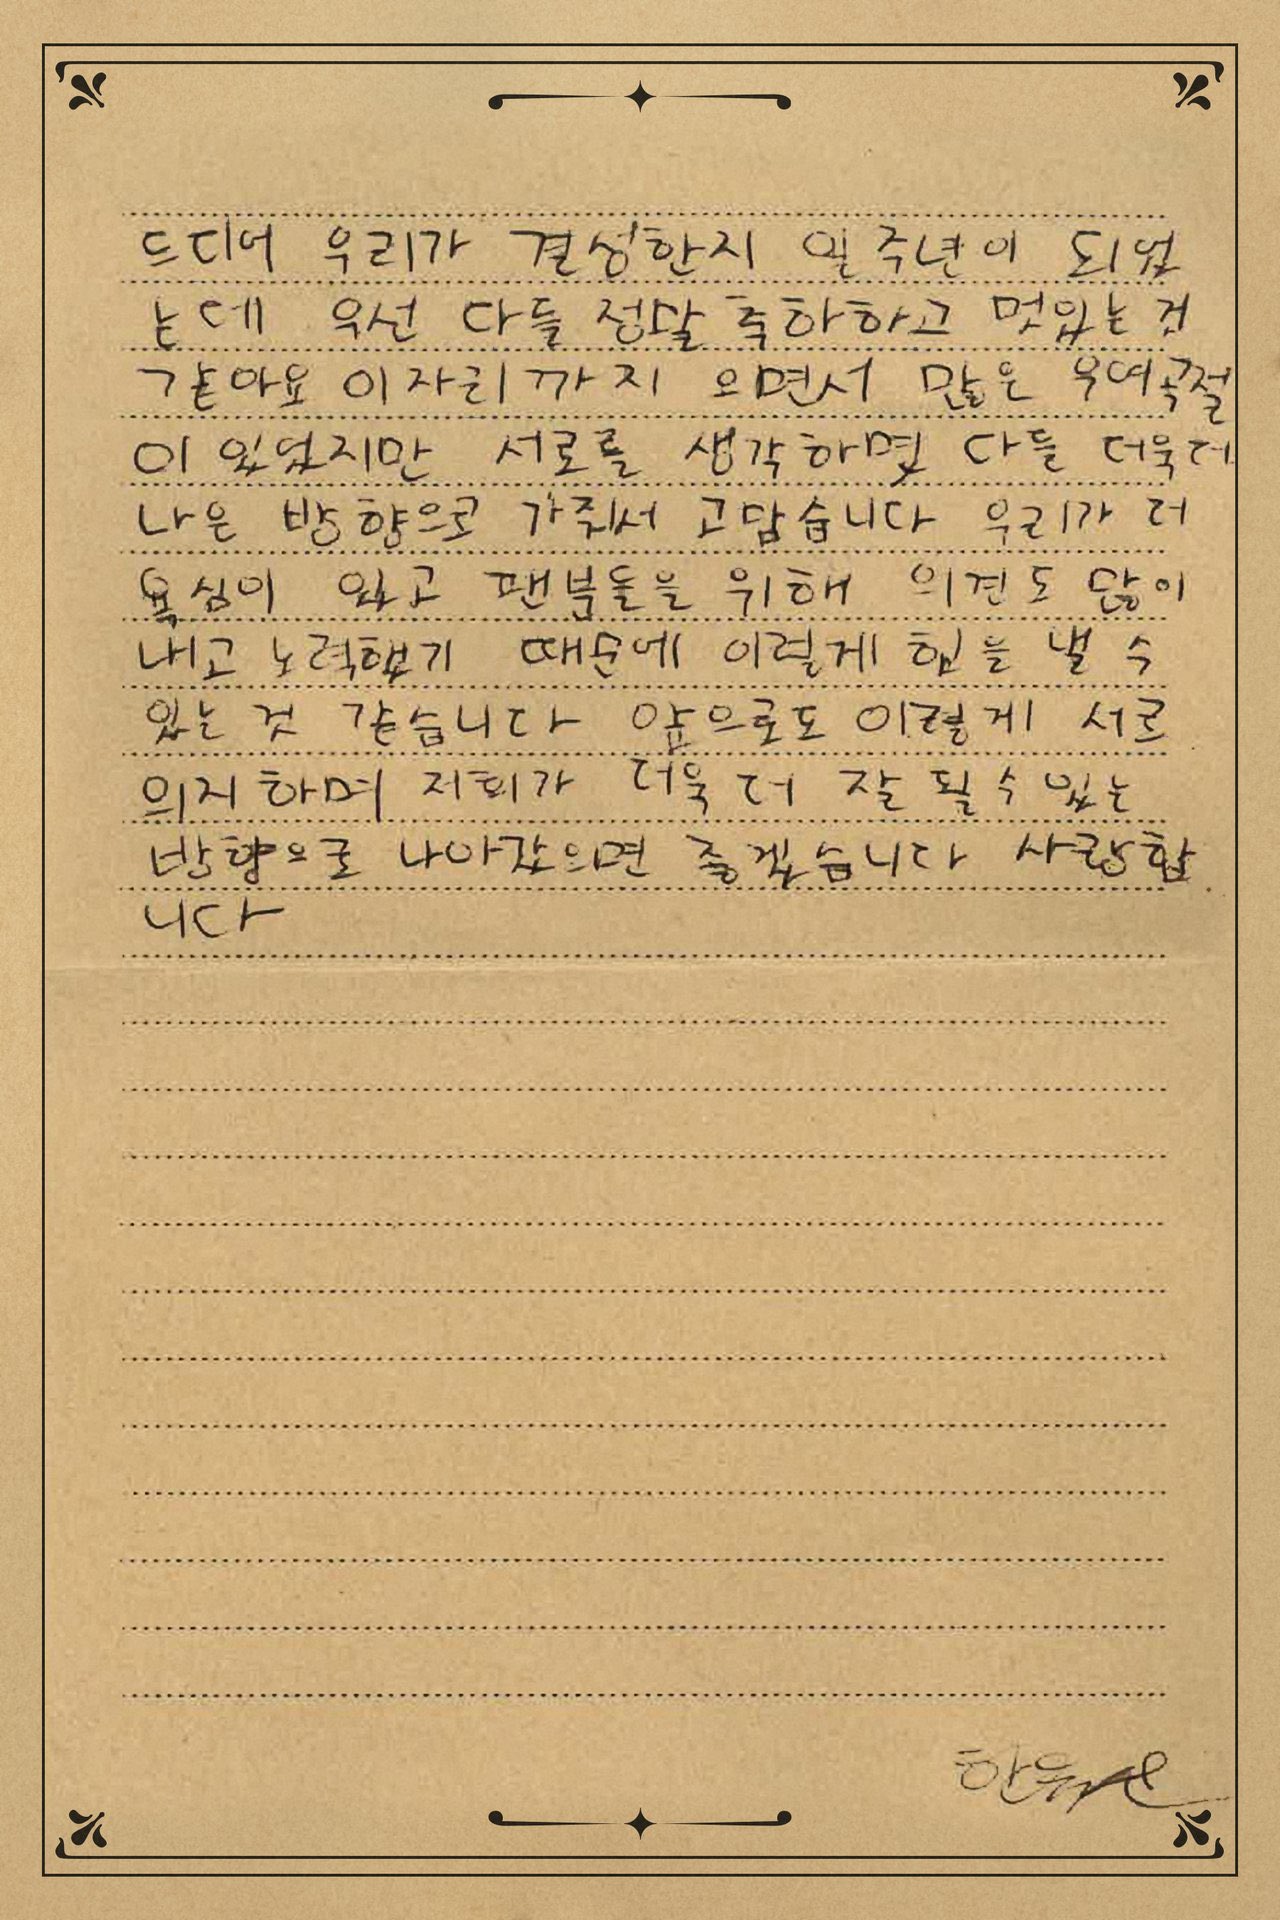 드디어 우리가 결성한지 일주년이 되었
는데 우선 다들 정말 축하하고 멋있는 것
같아요 이자리까지 으면서 많은 우여곡절
이 있었지만 서로를 생각하면 다들 더욱더
나은 방향으로 가줘서 고맙습니다 우리가 더
욕심이 있고 팬분들을 위해 의견도 많이
내고 노력했기 때문에 이렇게 힘을 낼 수
있는 것 같습니다 앞으로도 이렇게 서로
의지하며 저희가 더욱 더 잘 될 수 있는
방향으로 나아갔으면 좋겠습니다 사랑합
니다